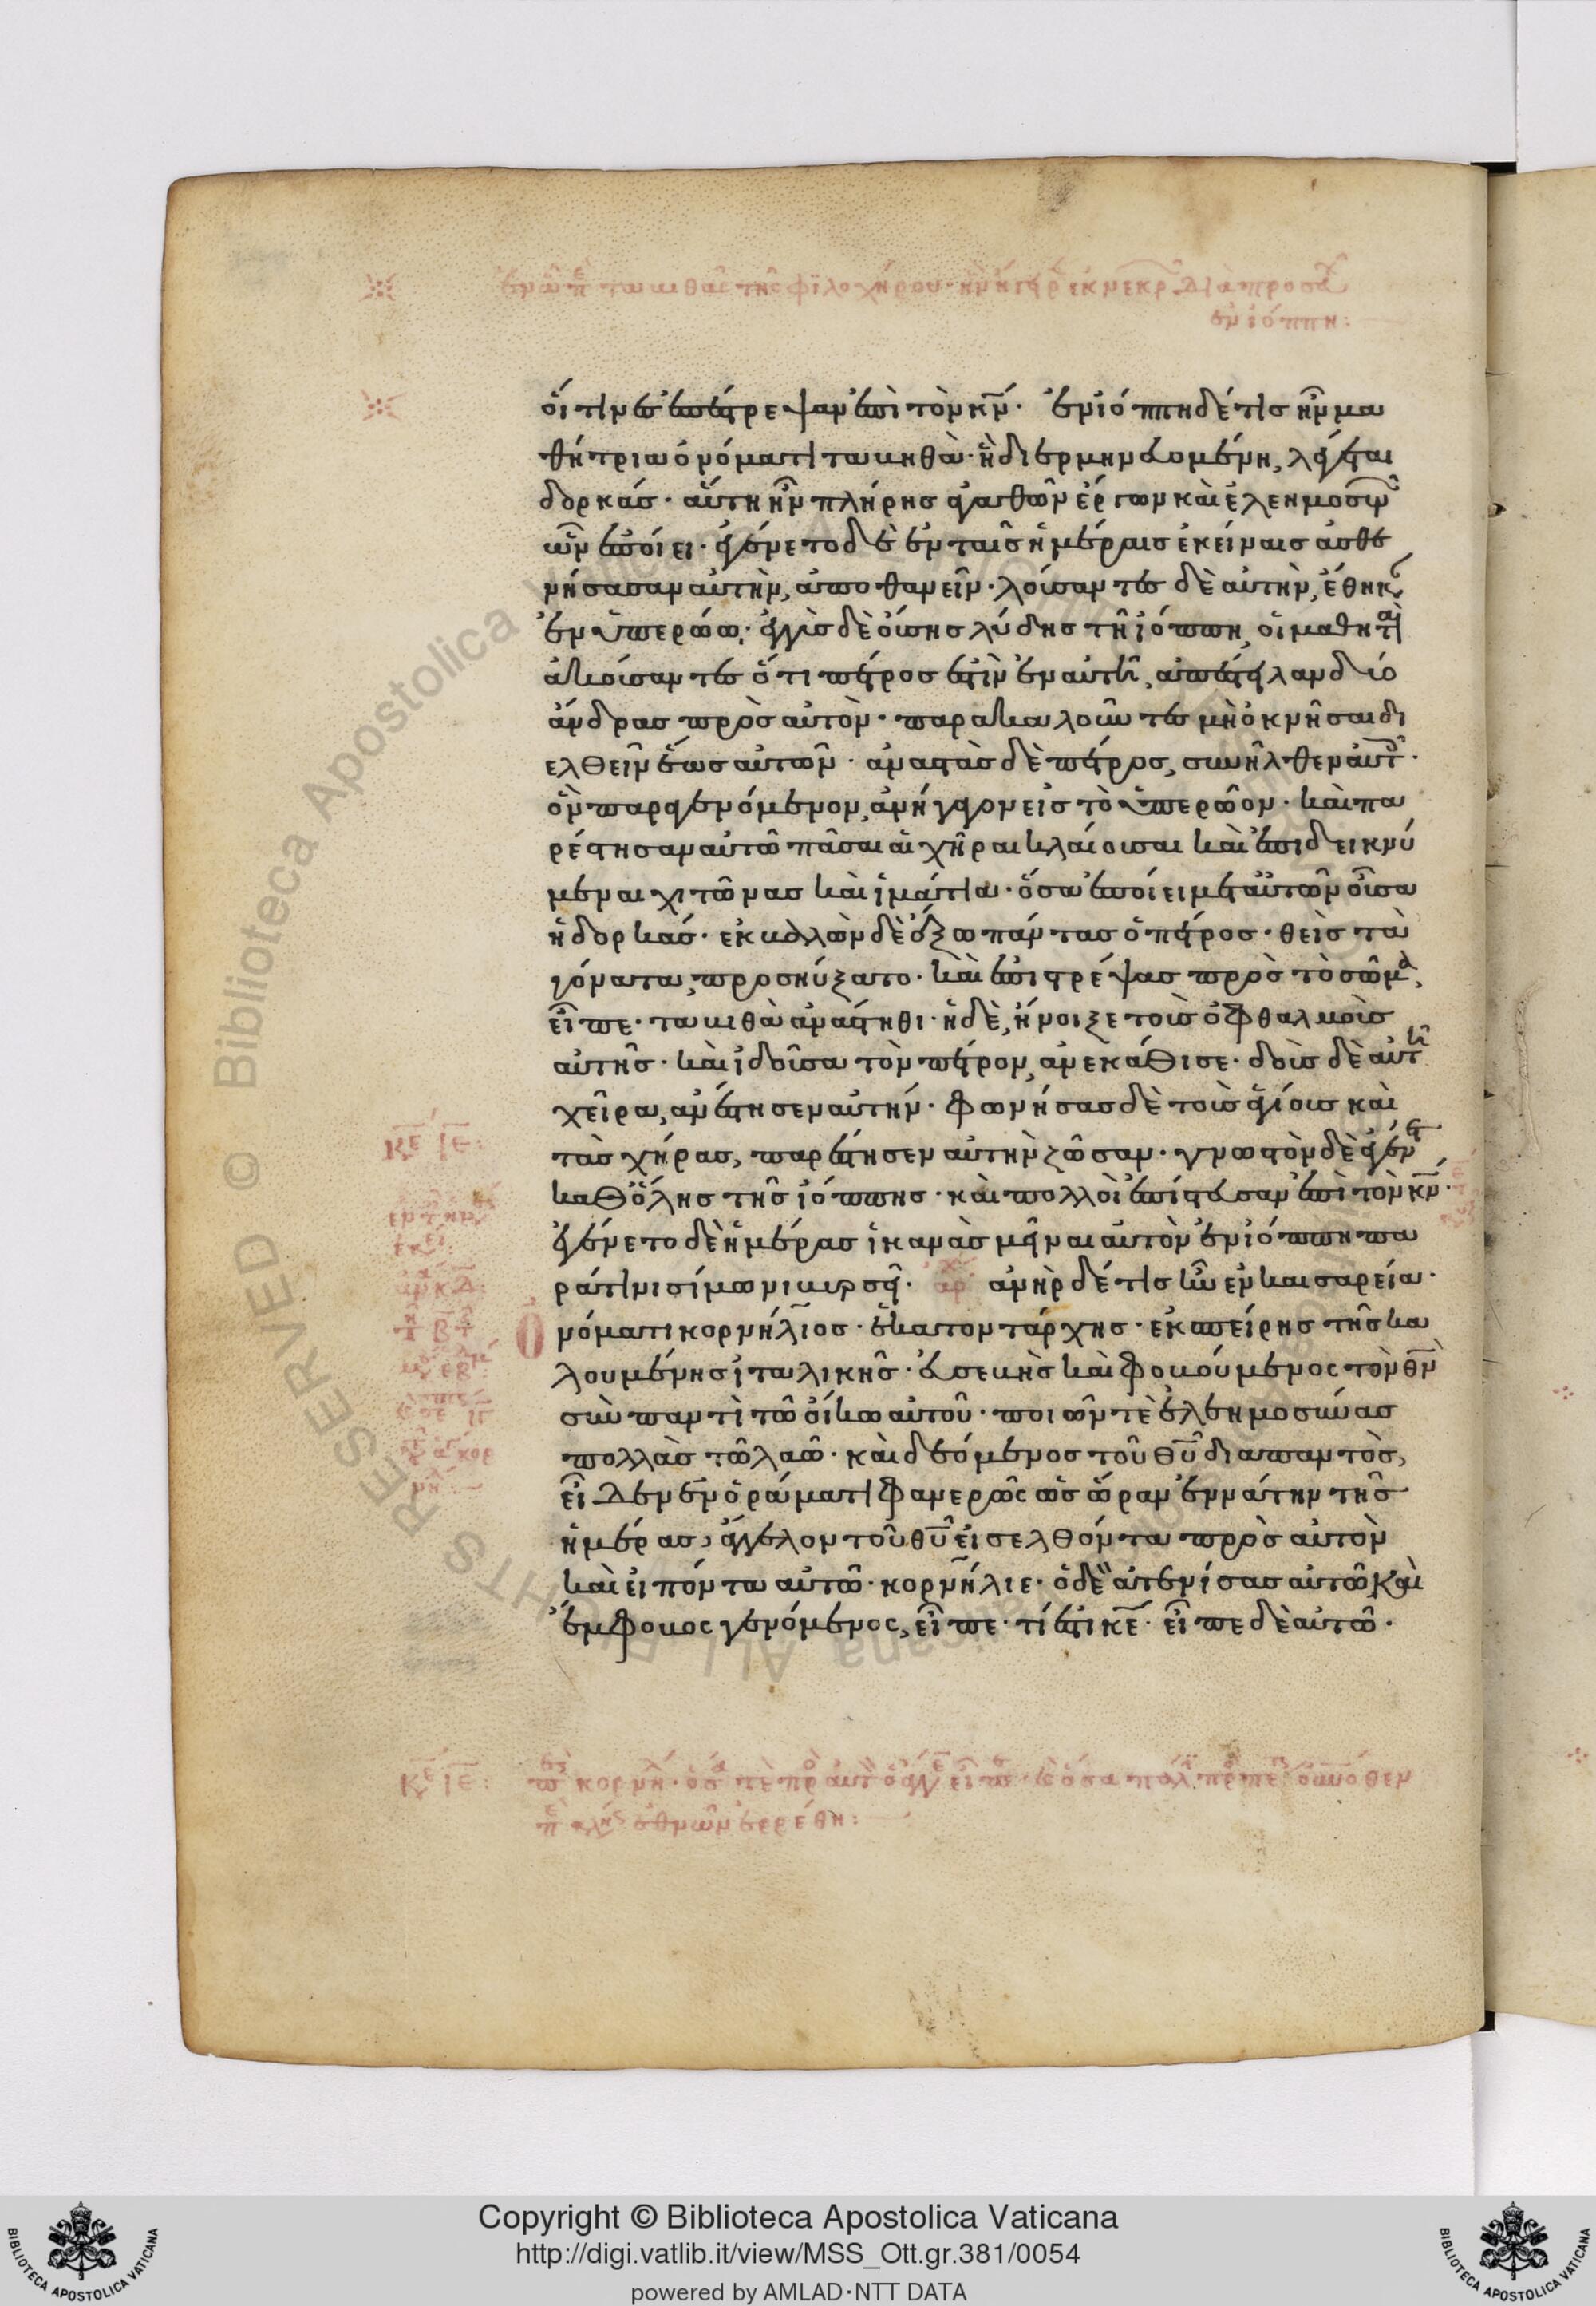 ἐν ᾧ πε ταβιθὰ τῆς φιλοχήρου ἣν ἤγειρεν ἐκ νεκρ διὰ προσευχ
ἐν ἰόππη:
οἵτινες ἐπέστρεψαν ἐπὶ τὸν κν· ἐν ἰόππη δέ τις ἦν μα
θήτρια ὀνόματι ταβηθὰ· ἣ διερμηνευομένη, λέγεται
δορκάς· αὕτη ἦν πλήρης ἀγαθῶν ἔργων καὶ ἐλεημοσυν
ὧν ἐποίει· ἐγένετο δὲ ἐν ταῖς ἡμέραις ἐκείναις ἀσθε
νήσασαν αὐτὴν, ἀποθανεῖν· λούσαντες δὲ αὐτὴν, ἔθηκαν
ἐν ὑπερώω· ἐγγὺς δὲ οὔσης λύδης τῆ ἰόππη, οἱ μαθηταὶ
ἀκούσαντες ὅτι πέτρος ἐστὶν ἐν αὐτῆ, ἀπέστειλαν δύο
ἄνδρας πρὸς αὐτὸν· παρακαλοῦντες μὴ ὀκνῆσαι δι
ελθεῖν ἕως αὐτῶν· ἀναστὰς δὲ πέτρος, συνῆλθεν αὐτ·
ὃν παραγενόμενον, ἀνήγαγον εἰς τὸ ὑπερῶον· καὶ πα
ρέστησαν αὐτῶ πᾶσαι αἱ χῆραι κλαίουσαι καὶ ἐπιδεικνύ
μεναι χιτῶνας καὶ ἱμάτια· ὅσα ἐποίει μετ αὐτῶν οὖσα
ἡ δορκάς· ἐκβαλὼν δὲ ἔξω πάντας ὁ πέτρος· θεὶς τὰ
γόνατα, προσηύξατο· καὶ ἐπιστρέψας πρὸς τὸ σῶμα,
εἶπε· ταβιθὰ ἀνάστηθι· ἡ δὲ, ἤνοιξε τοὺς ὀφθαλμοὺς
αὐτῆς· καὶ ἰδοῦσα τὸν πέτρον, ἀνεκάθισε· δοὺς δὲ αὐτῆ
χεῖρα, ἀνέστησεν αὐτήν· φωνήσας δὲ τοὺς ἁγίους καὶ
τὰς χήρας, παρέστησεν αὐτὴν ζῶσαν· γνωστὸν δὲ ἐγένετ
καθ ὅλης τῆς ἰόππης· καὶ πολλοὶ ἐπίστευσαν ἐπὶ τὸν κν·
ἐγένετο δὲ ἡμέρας ἱκανὰς μεῖναι αὐτὸν ἐν ἰόππη πα
ρά τινι σίμωνι βυρσεῖ· αρχ ἀνὴρ δέ τις ἦν ἐν καισαρεία·
ὀνόματι κορνήλιος· ἑκατοντάρχης· ἐκ σπείρης τῆς κα
λουμένης ἰταλικῆς· εὐσεβὴς καὶ φοβούμενος τὸν θν
σὺν παντὶ τῶ οἴκω αὐτοῦ· ποιῶν τὲ ἐλεημοσύνας
πολλὰς τῶ λαῶ· καὶ δεόμενος τοῦ θυ διαπαντὸς,
εἶδεν ἐν ὁράματι φανερῶς ὡς ὥραν ἐννάτην τῆς
ἡμέρας, ἄγγελον τοῦ θυ εἰσελθόντα πρὸς αὐτὸν
καὶ εἰπόντα αὐτῶ· κορνήλιε· ὁ δὲ ἀτενίσας αὐτῶ καὶ
ἔμφοβος γενόμενος, εἶπε· τί ἐστι κε· εἶπε δὲ αὐτῶ·
Κε ιε:
Copyright © Biblioteca Apostolica Vaticana
http://digi.vatlib.it/view/MSS_Ott.gr.381/0054
powered by AMLAD·NTT DATA